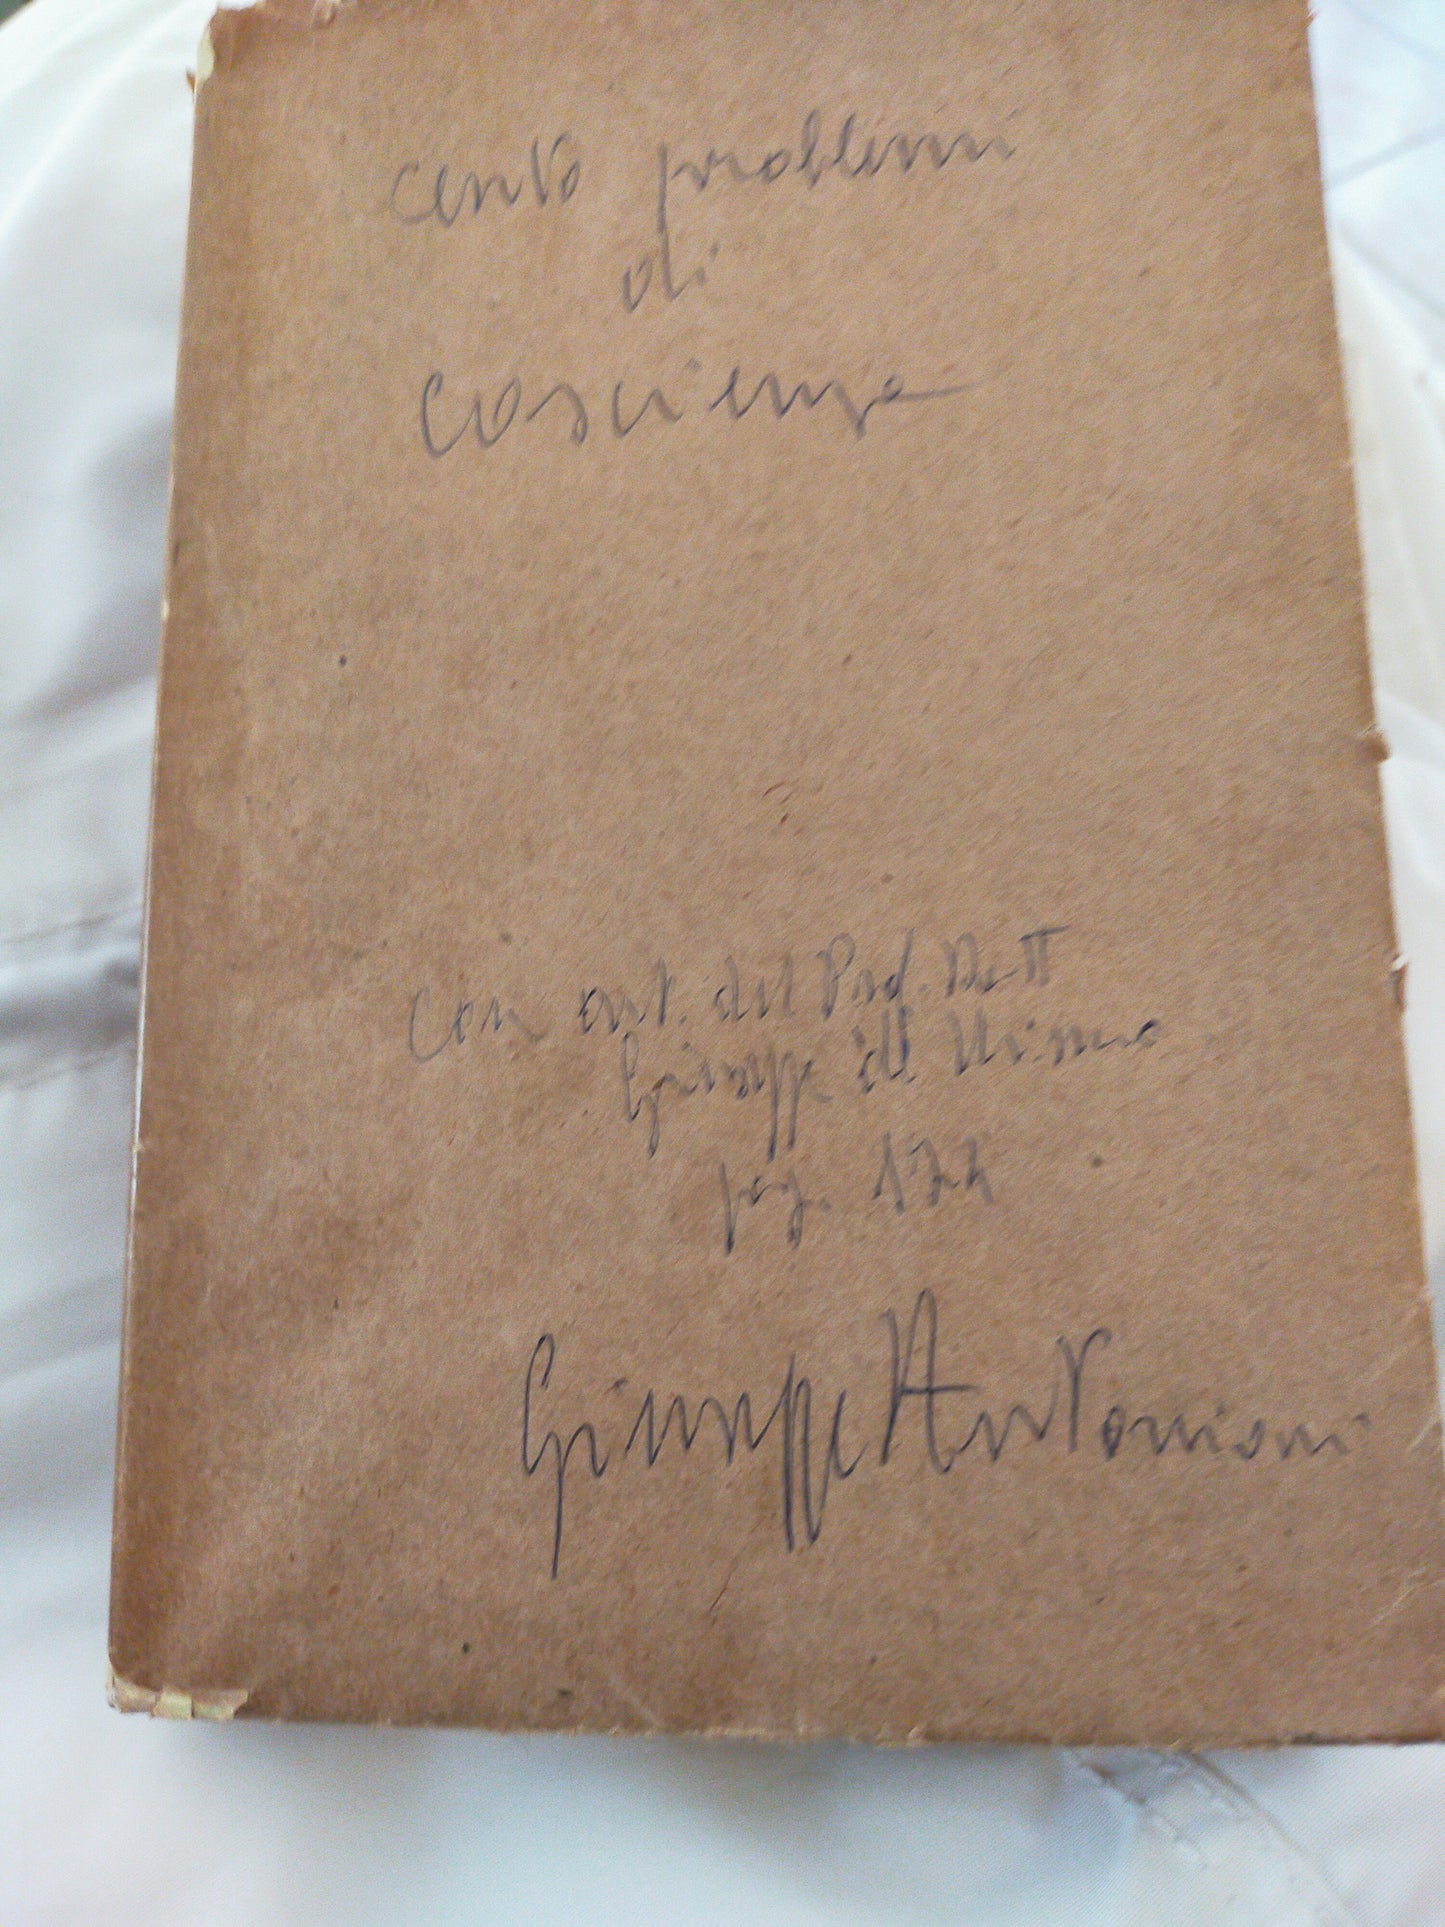 cento problemi
di
coscienza
con art. del Prof. Dott
Giuseppe
pag. 174
Giuseppe Antonioni